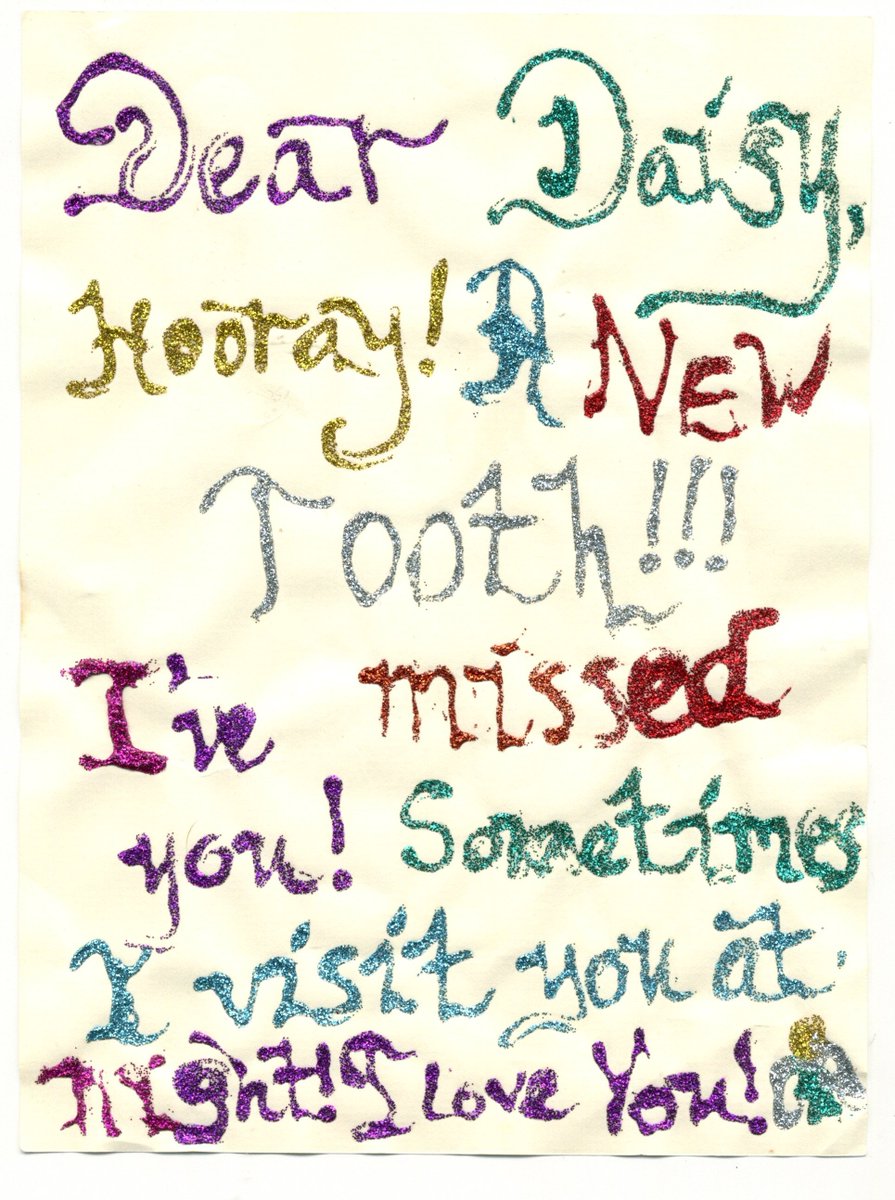 Dear Daisy,
Hooray! A New
Tooth!!!
I've missed
you! Sometimes
I visit you at
night! I love You!